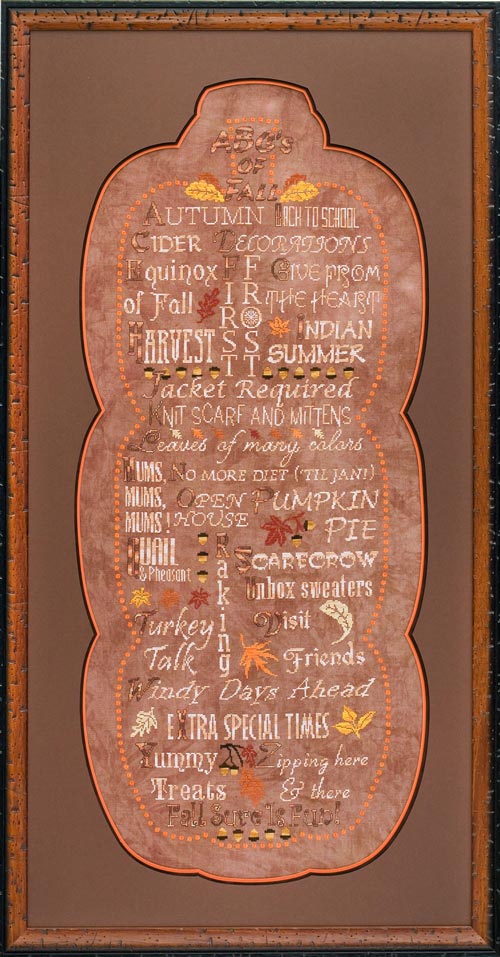 ABC's
OF
FALL
AUTUMN BACK TO SCHOOL
CIDER DECORATIONS
Equinox
of Fall
FIRST
FROST
GIVE FROM
THE HEART
HARVEST
INDIAN
SUMMER
Jacket Required
KNIT SCARF AND MITTENS
Leaves of many colors
MUMS,
MUMS,
MUMS!
NO MORE DIET ('TIL JAN!)
OPEN
HOUSE
PUMPKIN
PIE
QUAIL
& Pheasant
Raking
SCARECROW
Unbox sweaters
Turkey
Talk
Visit
Friends
Windy Days Ahead
EXTRA SPECIAL TIMES
Yummy
Treats
Zipping here
& there
Fall Sure Is Fun!